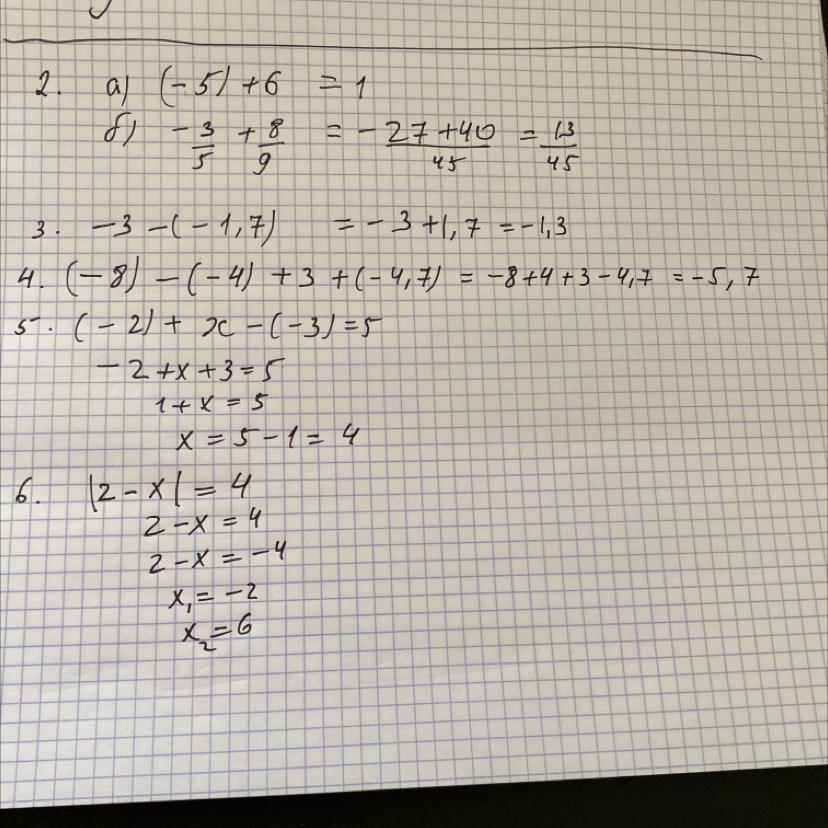 2. а) (-5) + 6 = 1
б) -3/5 + 8/9 = -27+40/45 = 13/45
3. -3 -(-1,7) = -3+1,7 = -1,3
4. (-8) - (-4) + 3 + (-4,7) = -8+4+3-4,7 = -5,7
5. (-2) + x - (-3) = 5
-2+x+3=5
1+x=5
x=5-1=4
6. |2-x| = 4
2-x=4
2-x=-4
x₁=-2
x₂=6